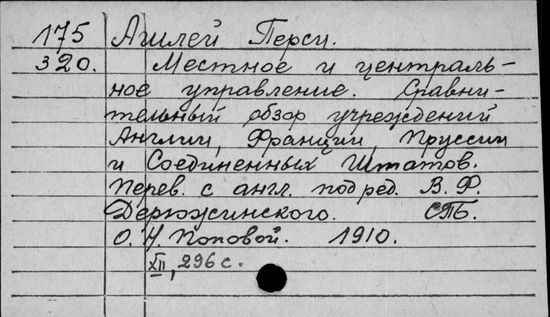 175 Ашлей Перси.
320. Местное и централь-
ное управление. Сравни-
тельный обзор учреждений
Англии, Франции, Пруссии
и Соединенных Штатов.
Перев. с англ. под ред. В. Ф.
Дерюжинского. СПБ.
О. Н. Поповой. 1910.
XII, 296 с.